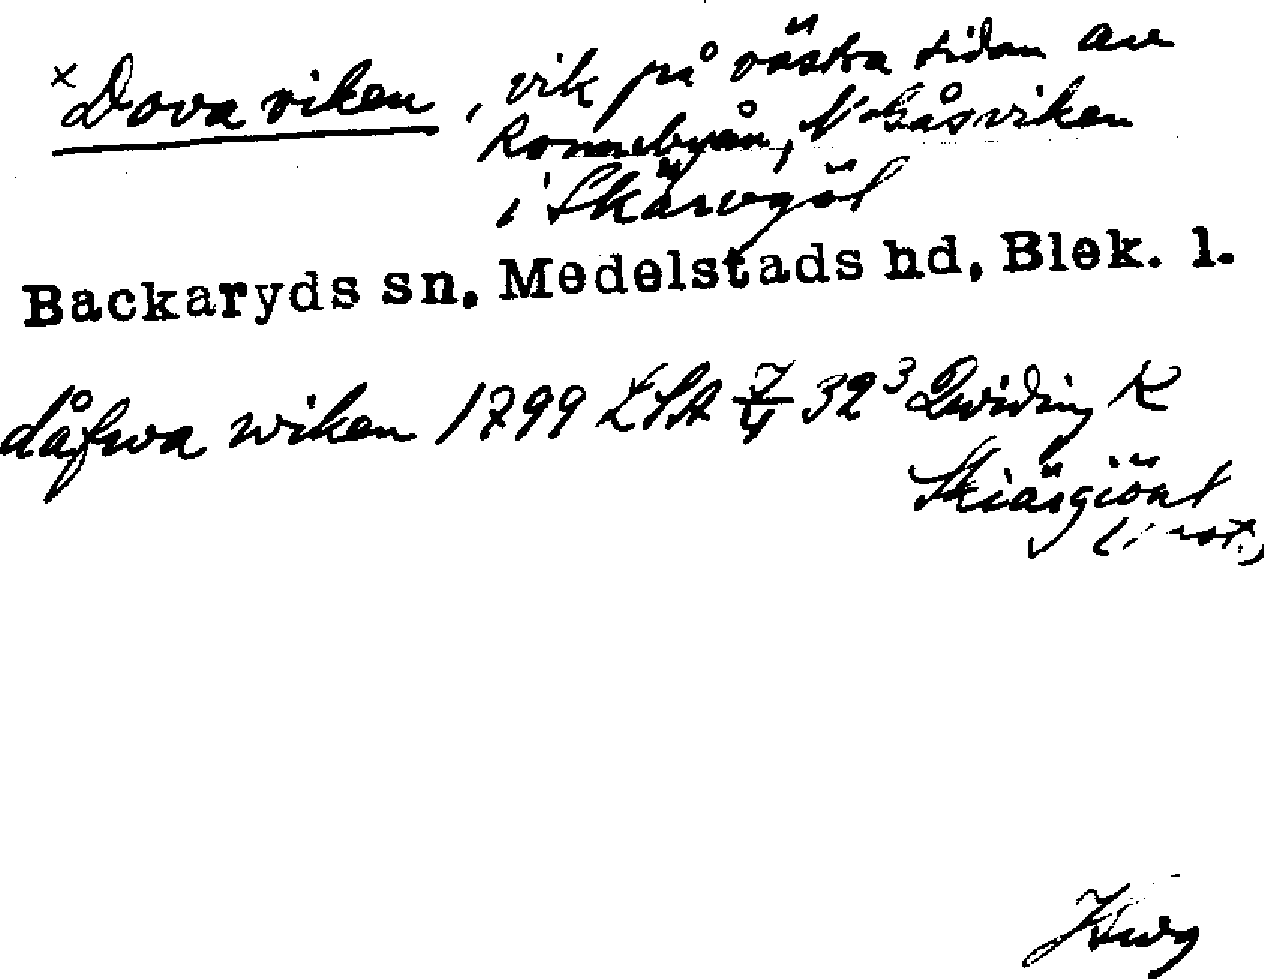 ×Dova viken, vik på västra sidan av
Ronnebyån, N Gåsviken
i Skärvgöl
Backaryds sn, Medelstads hd, Blek. l.
dåfwa wiken 1799 LSA 32³ Qwiding K
Skiärgiöhl